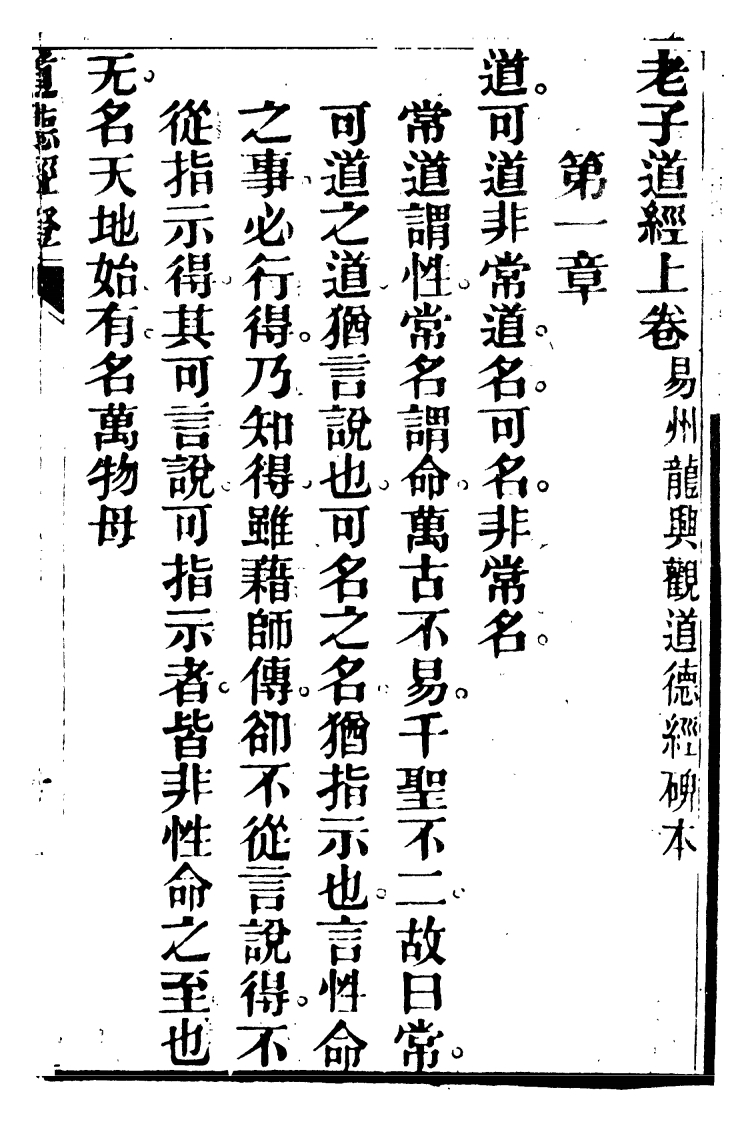 老子道經上卷 易州龍興觀道德經碑本
第一章
道。可道非常道。名。可名。非常名。
常道謂性。常名謂命。萬古不易。千聖不二。故曰常。
可道之道。猶言說也。可名之名。猶指示也。言性命
之事。必行得。乃知得。雖藉師傳。卻不從言說得。不
從指示得。其可言說。可指示者。皆非性命之至也
无。名天地始。有。名萬物母
道德經